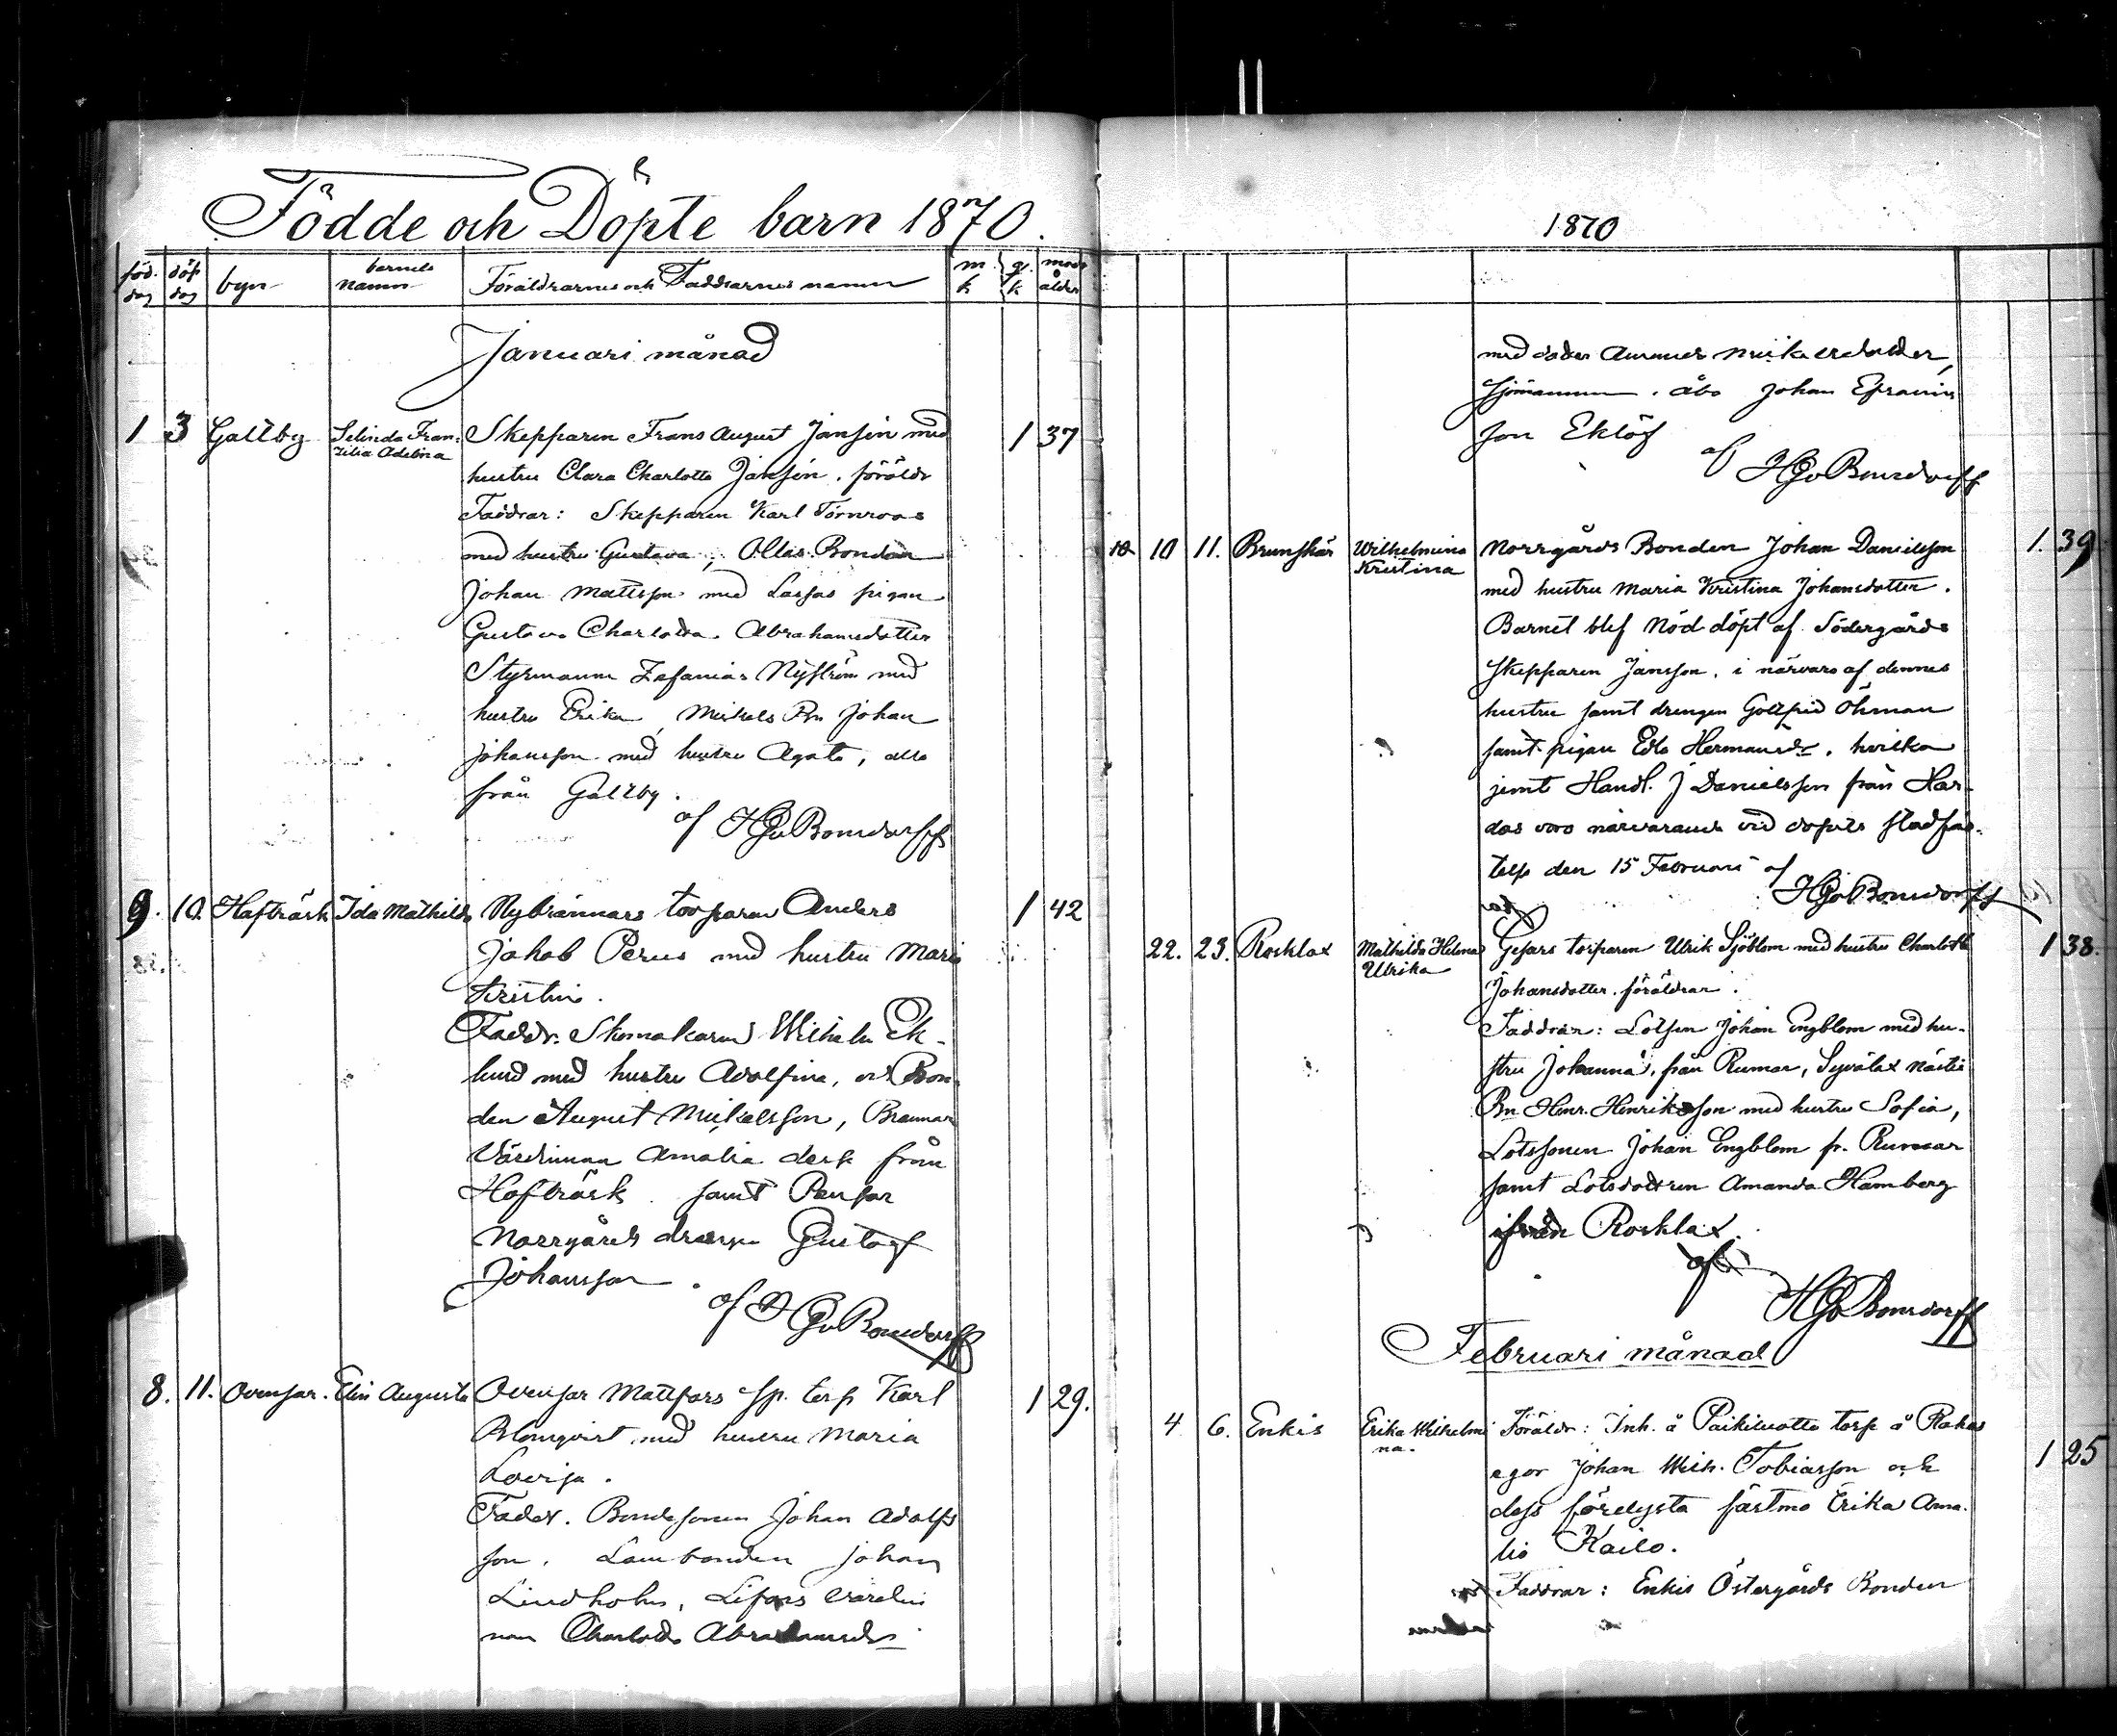 Födde och Döpte barn 1870.
föd. dag döp dag byn barnets namn Föräldrarnes och Faddrarnes namn m k q. k mods ålder
Januari månad
1 3 Galtby Selinda Fran- Skepparen Frans August Jansén med 1 37
zilia Adelina
hustru Clara Charlotta Jansén, föräldr
Faddrar: Skepparen Karl Törnroos
med hustru Gustava, Ollas Bonden
Johan Mattsson med Lassas pigan
Gustava Charlotta Abrahamsdotter
Styrmann Zefanias Nyström med
hustru Erika, Mickels Bn Johan
Johansson med hustru Agata, alla
från Galtby.
af HGvBonsdorff
9. 10. Hafträsk Ida Mathilda Nybrännars torparen Anders 1 42
Jakob Perus med hustru Maria
Kristina.
Faddr. Skomakaren Wilhelm Ek-
lund med hustru Adolfina, Bon-
den August Mickelsson, Brännar
Värdinnan Amalia från
Hafträsk samt Pensar
Norrgårds drengen Gustaf
Johansson.
af HGvBonsdorff
8. 11. Ovensar. Elin Augusta Ovensar Mattsars torp Karl 1 29.
Blomqvist med hustru Maria
Lovisa.
Faddr. Bondesonen Johan Adolfs
son, Lambonden Johan
Lindholm, Värdin
nan Charlotta Abrahamsdr
1870
med
Sjömannen Åbo Johan Efraims
son Eklöf
af HGvBonsdorff
10 10 11. Brunskär Wilhelmina Norrgårds Bonden Johan Danielsson 1. 39
Kristina
med hustru Maria Kristina Johansdotter.
Barnet blef Nöd döpt af Södergårds
Skepparen Jansson, i närvaro af dennes
hustru samt drengen Gottfrid Öhman
samt pigan Eda Hermansdr, hvilka
jemt Handl. J Danielsson från Har-
das voro närvarande vid dopets stadfäs-
telse den 15 Februari af
HGvBonsdorff
22. 23. Rosklax Mathilda Helena Gesars torparen Ulrik Sjöblom med hustru Charlotta 1 38.
Ulrika
Johansdotter föräldrar.
Faddrar: Lotsen Johan Engblom med hu-
stru Johanna, från Rumar, Syvälax
Bn Henr. Henriksson med hustru Sofia,
Lotssonen Johan Engblom fr. Rumar
samt Lotsdottren Amanda Hamberg
ifrån Rosklax.
af
HGvBonsdorff
Februari månad
4 6. Enkis Erika Wilhelmi Föräldr: Inh. å torp å
na.
egor Johan Wilh. Tobiasson och 1 25
dess förelysta fästmo Erika Ama-
lia Kailo.
Faddrar: Enkis Östergårds Bonden